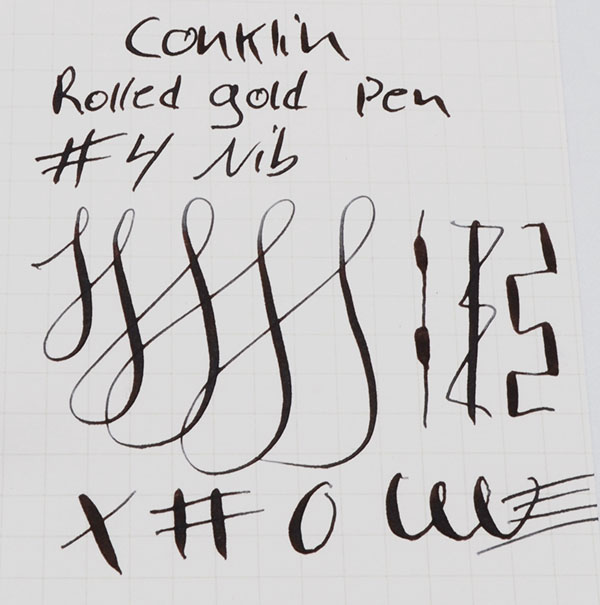 Conklin
Rolled gold Pen
#4 Nib
X # O